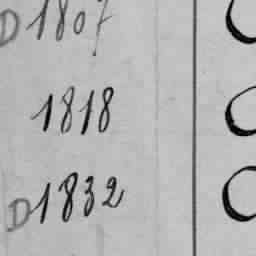 D 1807
1818
D 1832